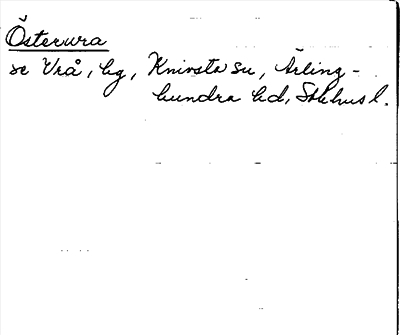 Österura
se Vrå, by, Knivsta sn, Ärling-
hundra hd, Sthlms l.